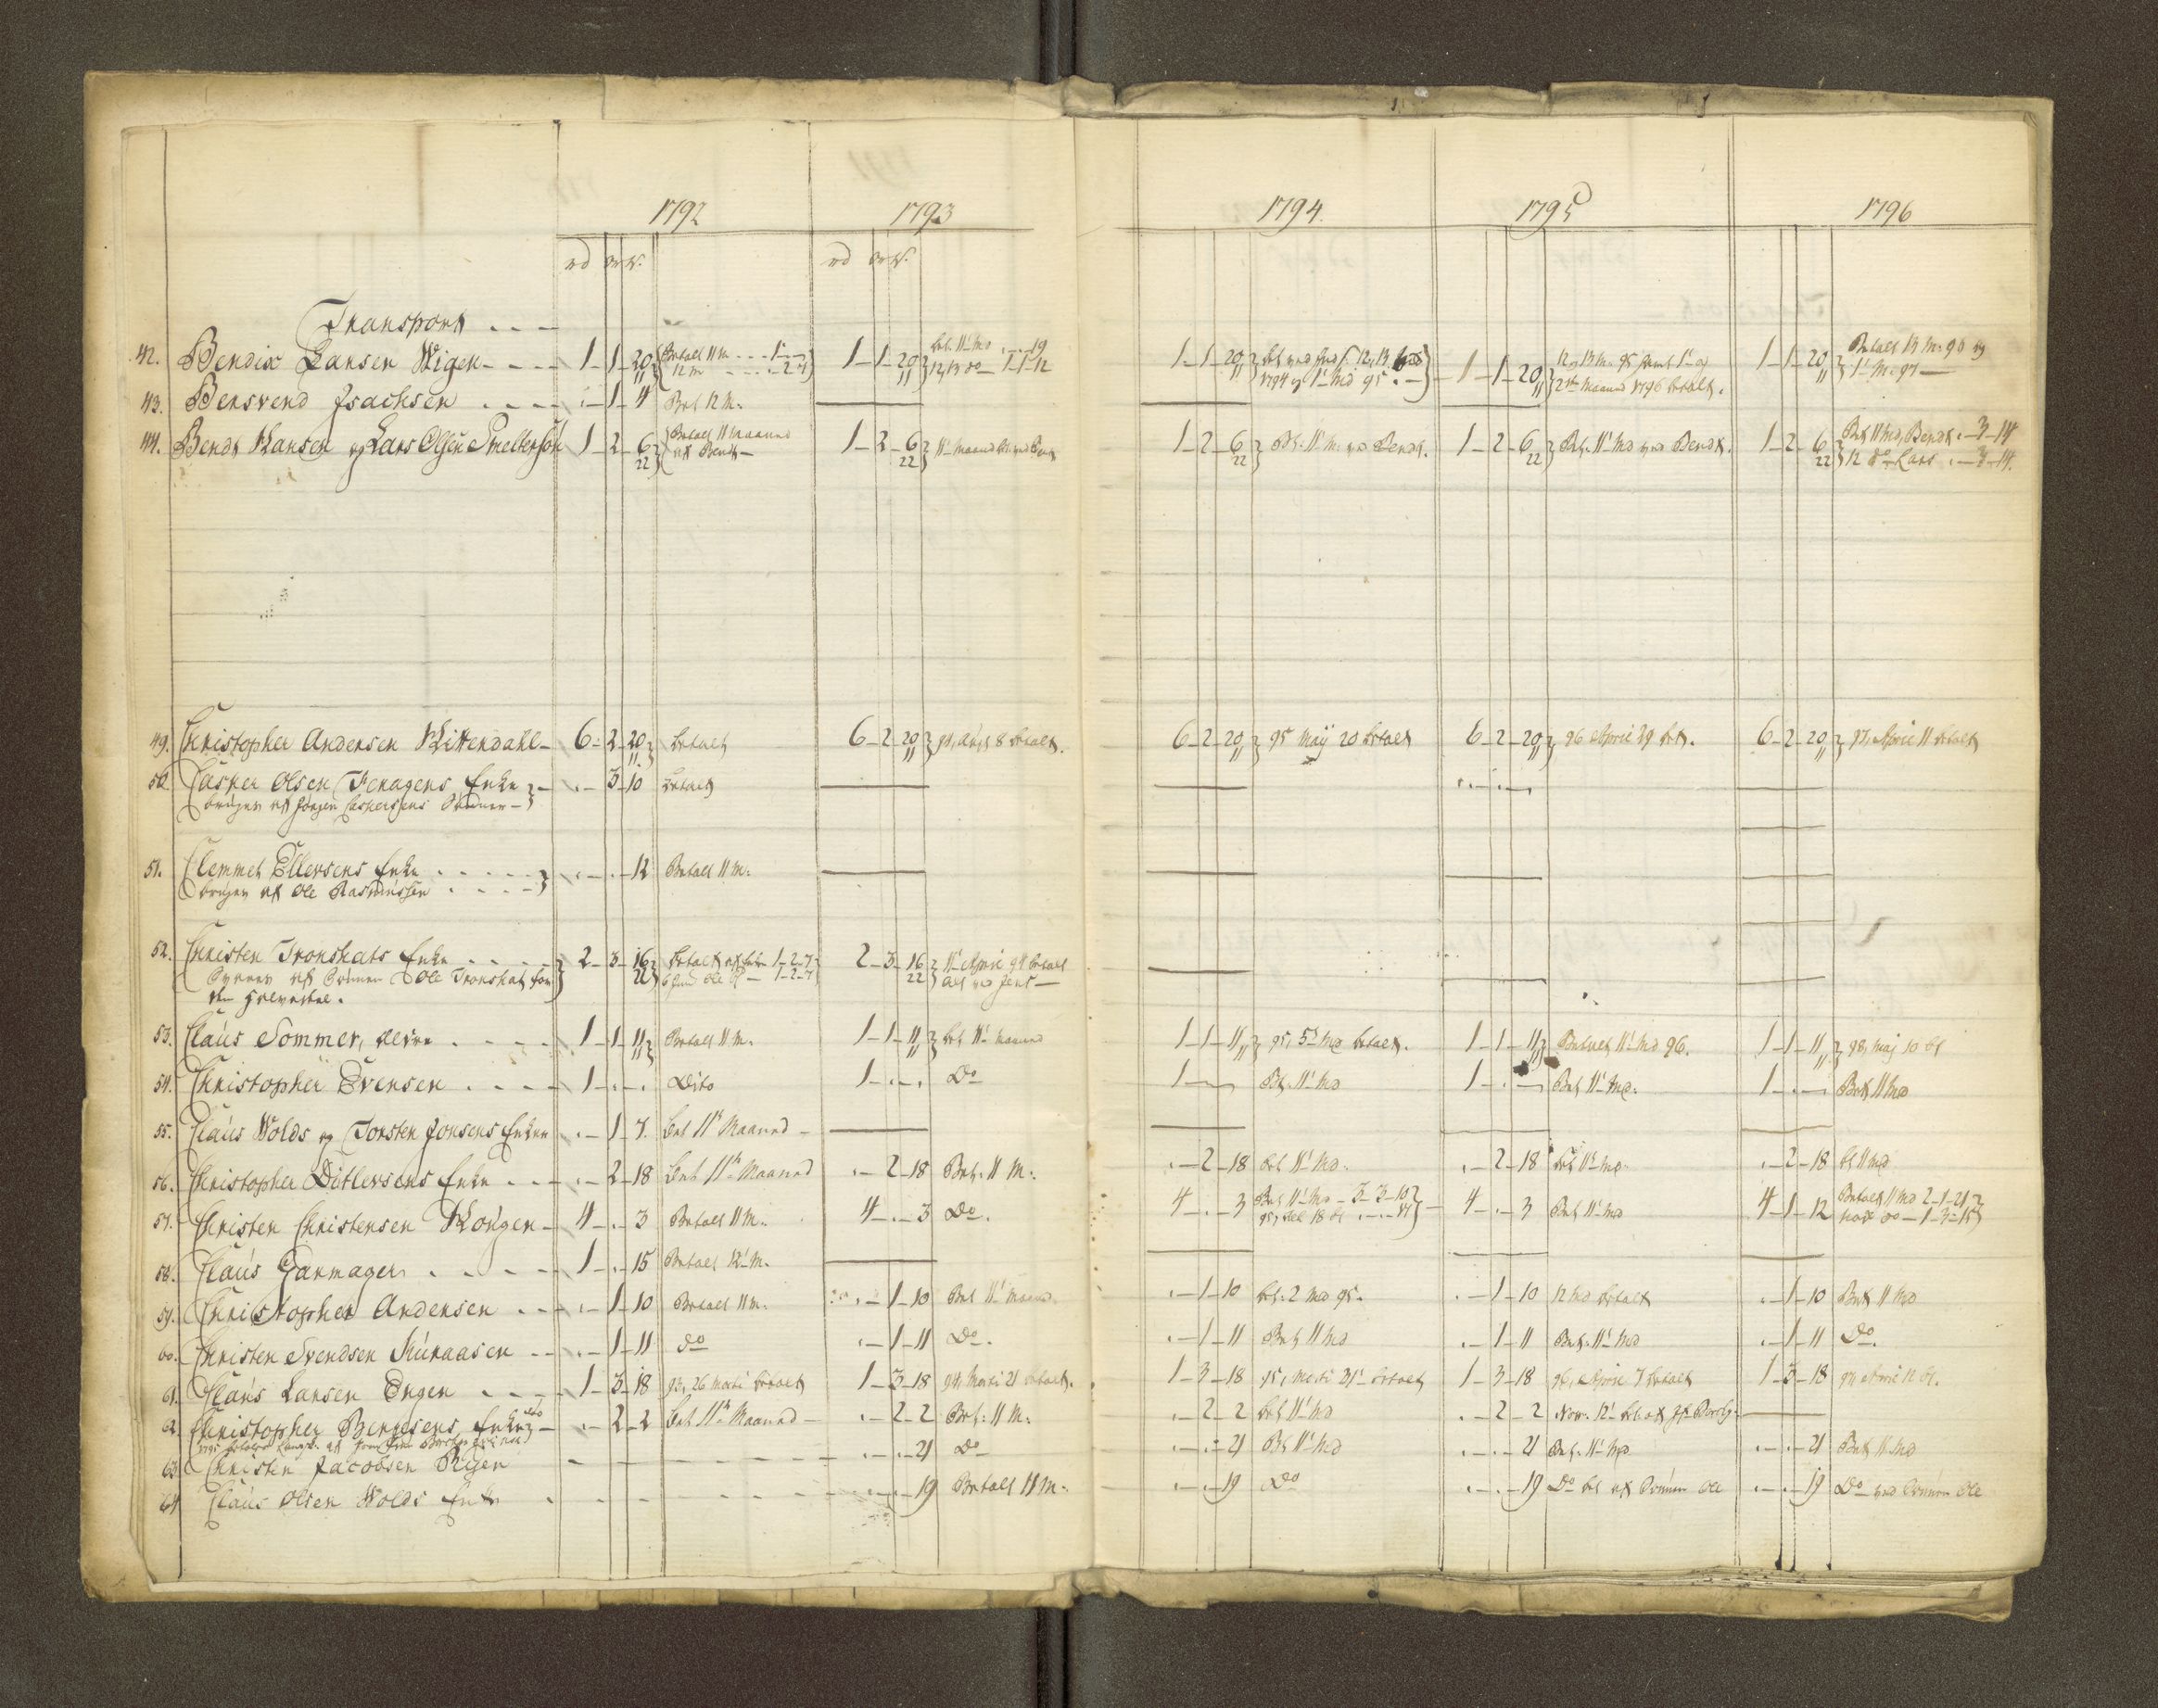 1792 1793 1794. 1795 1796
rd ort ß. rd ort ß.
Transport . . —
42. Bendix Larsen Wigen - - - - 1-1-20 11 Betalt 11 m - - - 1 - - 1-1-20 11 bet. 11' md . - . - 19 1-1-20 11 1-1-20 11 12 og 13 m. 95 samt 1' og 1-1-20 11 Betalt 13 m. 96 og
12 m - - - - 2-1 12, 13 do — 1-1-12 1794 og 1' md 95 . — 2den Maaned 1796 betalt. 1' m. 97 —
43. Bensvend Isachsen . . . - . - 1 - 4 Bet 12 m.
44. Bendt Hansen og Lars Olsen Smelterson 1-2-6 22 Betalt 11 Maaned 1-2-6 22 11' maaned 1-2-6 22 Bet. 11' m. ved Bendt. 1-2-6 22 Bet. 11' md ved Bendt. 1-2-6 22 Bet 11 md, Bendt . - 3-14
af Bendt — 12 do Lars . - 3-14.
49. Christopher Andersen Wittendahl - 6-2-20 11 betalt 6-2-20 11 betalt. 6-2-20 11 95 Maij 20 betalt 6-2-20 11 96 April 29 bet. 6-2-20 11 97, April 11 betalt
50. Casper Olsen Fenagens Enke . - 3-10 betalt
bruges af Jörgen Caspersens
51. Clemmet Ellevsens Enke . . . . . . - . - 12 Betalt 11 m.
bruges af Ole Rasmussen . . . .
52. Christen Tronshats Enke . . . . 2-3-16 22 betalt af Enken 1-2-7 2-3-16 22 11' April 94 betalt
af Sönnen Ole Tronshat for Ole 1-2-7 alt ved Jens —
den halvedeel.
53. Claus Sommer, ældre . . . . 1-1-11 11 Betalt 11 m. 1-1-11 11 bet 11' maaned 1-1-11 11 95, 5' md betalt. 1-1-11 11 Betalt 11' md 96. 1-1-11 11 98, maj 10 bt
54. Christopher Evensen . . . . 1 - . - . Dito 1 - . - . Do 1 - Bet. 11' md 1 - . - Bet 11' md. 1 - . - Bet 11 md
55. Claus Wolds og Torsten Jonsens Enker . - 1-7. Bet 11te Maaned -
56. Christopher Ditlevsens Enke . . . . - 2-18 Bet 11te Maaned . - 2-18 Bet. 11 M. . - 2-18 bet 11' md. . - 2-18 bet 11' md. . - 2-18 bt 11 md
57. Christen Christensen Kongen - 4 - . - 3 Betalt 11 m. 4 - . - 3 Do. 4 - . - 3 Bet 11' md - 3-3-10 4 - . - 3 Bet 11' md 4-1-12 Betalt 11 md 2-1-21
95, 18 bt . - . - 17 do — 1-3-15
58. Claus Garmager . . - - 1 - . - 15 Betalt 12' m.
59. Christopher Andersen . . . . - 1-10 Betalt 11 m. . - 1-10 Bet 11' maaned . - 1-10 bet. 2 md 95. . - 1-10 12 md betalt . - 1-10 Bet 11 md
60. Christen Svendsen Kuraasen . . . - 1-11 do . - 1-11 Do. . - 1-11 Bet 11 md . - 1-11 Bet. 11' md . - 1-11 Do.
61. Claus Larsen Engen . . . . 1-3-18 93, 26 Marti betalt 1-3-18 94, Marti 21 betalt. 1-3-18 95, Marti 31' betalt 1-3-18 96, April 7 betalt 1-3-18 97 April 12 bt.
62. Christopher Bentsens Enke - . - 2-2 Bet 11te Maaned - . - 2-2 Bet. 11 M. . - 2-2 bet 11' md . - 2-2 Nov. 12'
63. Christen Jacobsen Rigen . - . - 21 Do . - . - 21 Bt 11' md . - . - 21 Bet. 11' md . - . - 21 Bet 11' md
64 Claus Olsen Wolds Enke . . - . - 19 Betalt 11 M. . - . - 19 Do . - . - 19 Do bet af Sönnen Ole . - . - 19 Do ved Sönnen Ole